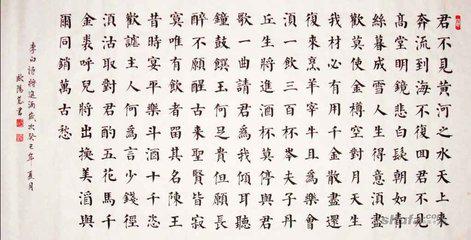 君不見黃河之水天上來
奔流到海不復回君不見
高堂明鏡悲白髮朝如青
絲暮成雪人生得意須盡
歡莫使金樽空對月天生
我材必有用千金散盡還
復來烹羊宰牛且為樂會
須一飲三百杯岑夫子丹
丘生將進酒杯莫停與君
歌一曲請君為我傾耳聽
鐘鼓饌玉何足貴但願長
醉不願醒古來聖賢皆寂
寞唯有飲者留其名陳王
昔時宴平樂斗酒十千恣
歡謔主人何為言少錢徑
須沽取對君酌五花馬千
金裘呼兒將出換美酒與
爾同銷萬古愁
李白詩將進酒歲次癸巳年夏月
歐陽書